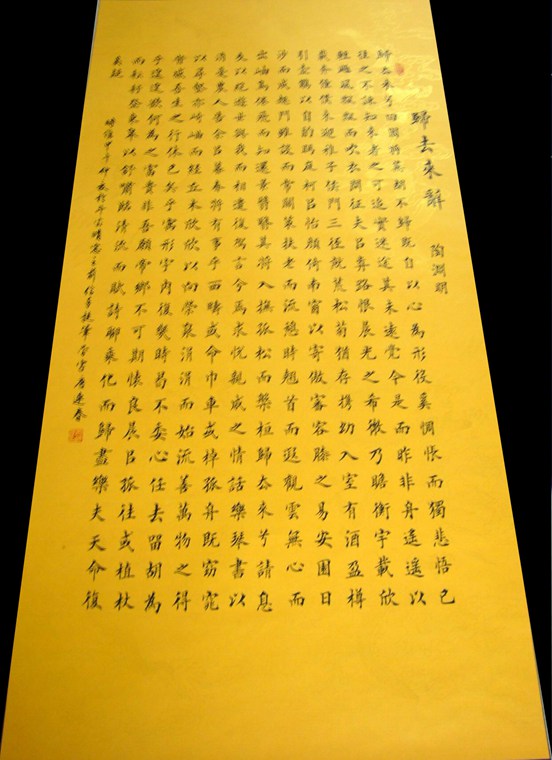 歸去來辭 陶淵明
歸去來兮田園將蕪胡不歸既自以心為形役奚惆悵而獨悲悟已
往之不諫知來者之可追實迷途其未遠覺今是而昨非舟遙遙以
輕颺風飄飄而吹衣問征夫㠯歬路恨晨光之希微乃瞻衡宇載欣
載奔僮僕來迎稚子候門三徑就荒松菊猶存携幼入室有酒盈樽
引壺觴以自酌眄庭柯㠯怡顏倚南窗以寄傲審容膝之易安園日
涉而成趣門雖設而常關策扶老而流憩時翹首而遐觀雲無心而
出岫鳥倦飛而知還景翳翳其將入撫孤松而槃桓歸去來兮請息
交以絕遊世與我而相遺復駕言兮焉求悅親戚之情話樂琴書以
消憂農人告余㠯暮春將有事乎西疇或命巾車或棹孤舟既窈窕
以尋壑亦崎嶇而經丘木欣欣以向榮泉涓涓而始流善萬物之得
時感吾生之行休已矣乎寓形宇內復幾時曷不委心任去留胡為
乎遑遑欲何為之富貴非吾願帝鄉不可期懷良辰㠯孤往或植杖
而耘耔登東皋以舒嘯臨清流而賦詩聊乘化而歸盡樂夫天命復
奚疑
時維甲午仲